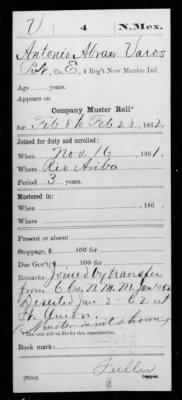 V 4 N.Mex.
Antonio Abran Varos
Pvt, Co. E, 4 Reg't New Mexico Inf.
Age years.
Appears on
Company Muster Roll*
for Feb 8 to Feb 23, 1862.
Joined for duty and enrolled:
When Nov. 16, 1861.
Where Rio Ariba
Period 3 years.
Mustered in:
When , 186 .
Where
Present or absent
Stoppage, $ 100 for
Due Gov't, $ 100 for
Remarks: Joined by transfer
from C Co. N.M.M. Jan
Deserted Jan 2 - 62 at
Ft. Union.
Muster in not shown
*The only roll on file for this organization.
Book mark:
Fuller
Copyist.